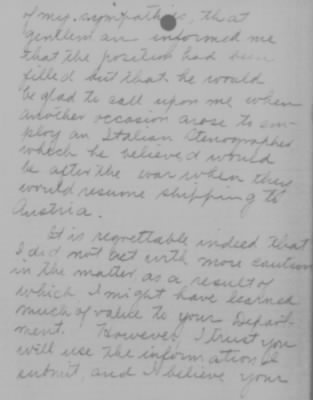 of my sympathies, that
gentleman informed me
that the position had been
filled but that he would
be glad to call upon me when
another occasion arose to em-
ploy an Italian Stenographer
which he believed would
be after the war when they
would resume shipping to
Austria.
It is regrettable indeed that
I did not act with more caution
in the matter, as a result of
which I might have learned
much of value to your Depart-
ment. However, I trust you
will use the information I
submit, and I believe your